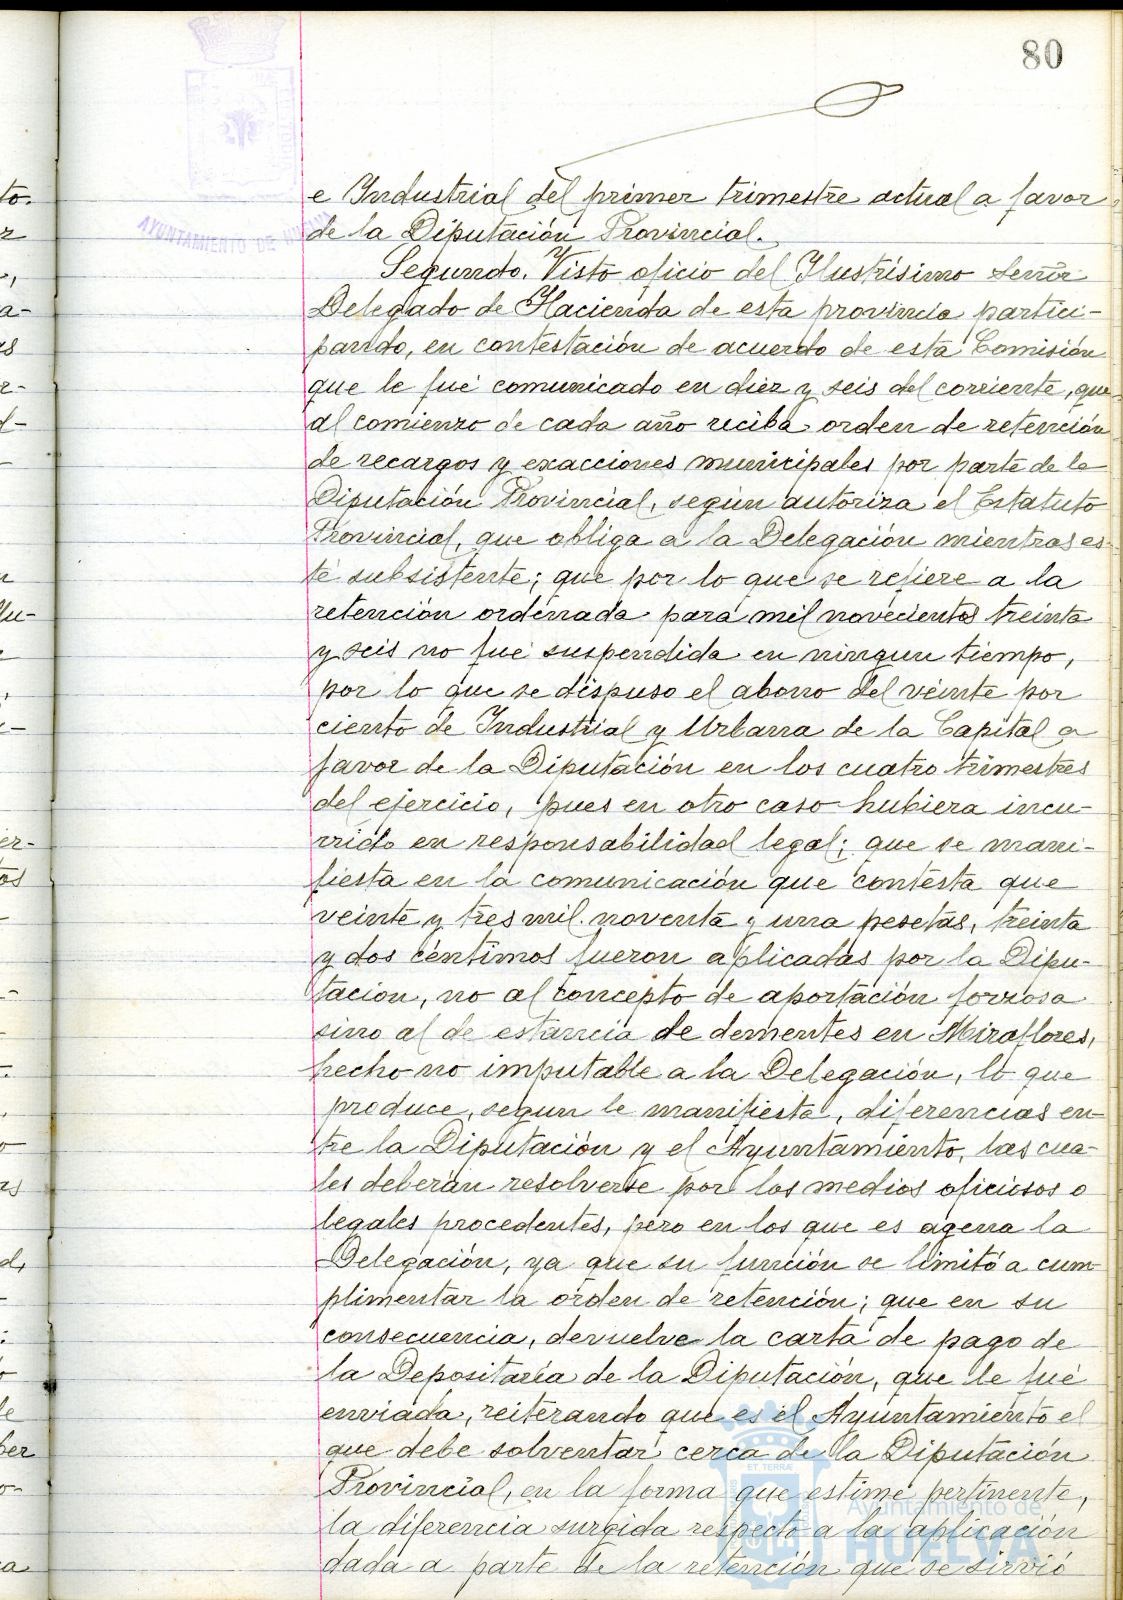 80
AYUNTAMIENTO DE
e Industrial del primer trimestre actual a favor
de la Diputación Provincial.
Segundo. Visto oficio del Ilustrísimo Señor
Delegado de Hacienda de esta provincia partici-
pando, en contestación de acuerdo de esta Comisión
que le fué comunicado en diez y seis del corriente, que
al comienzo de cada año reciba orden de retención
de recargos y exacciones municipales por parte de la
Diputación Provincial, según autoriza el Estatuto
Provincial, que obliga a la Delegación mientras es-
té subsistente; que por lo que se refiere a la
retención ordenada para mil novecientos treinta
y seis no fué suspendida en ningun tiempo,
por lo que se dispuso el abono del veinte por
ciento de Industrial y Urbana de la Capital a
favor de la Diputación en los cuatro trimestres
del ejercicio, pues en otro caso hubiera incu-
rrido en responsabilidad legal; que se mani-
fiesta en la comunicación que contesta que
veinte y tres mil noventa y una pesetas, treinta
y dos céntimos fueron aplicadas por la Dipu-
tación, no al concepto de aportación forzosa
sino al de estancia de dementes en Miraflores,
hecho no imputable a la Delegación, lo que
produce, segun le manifiesta, diferencias en-
tre la Diputación y el Ayuntamiento, las cua-
les deberán resolverse por los medios oficiosos o
legales procedentes, pero en los que es agena la
Delegación, ya que su función se limitó a cum-
plimentar la orden de retención; que en su
consecuencia, devuelve la carta de pago de
la Depositaría de la Diputación, que le fué
enviada, reiterando que es el Ayuntamiento el
que debe solventar cerca de la Diputación
Provincial, en la forma que estime pertinente,
la diferencia surgida respecto a la aplicación
dada a parte de la retención que se sirvió
Ayuntamiento de
HUELVA